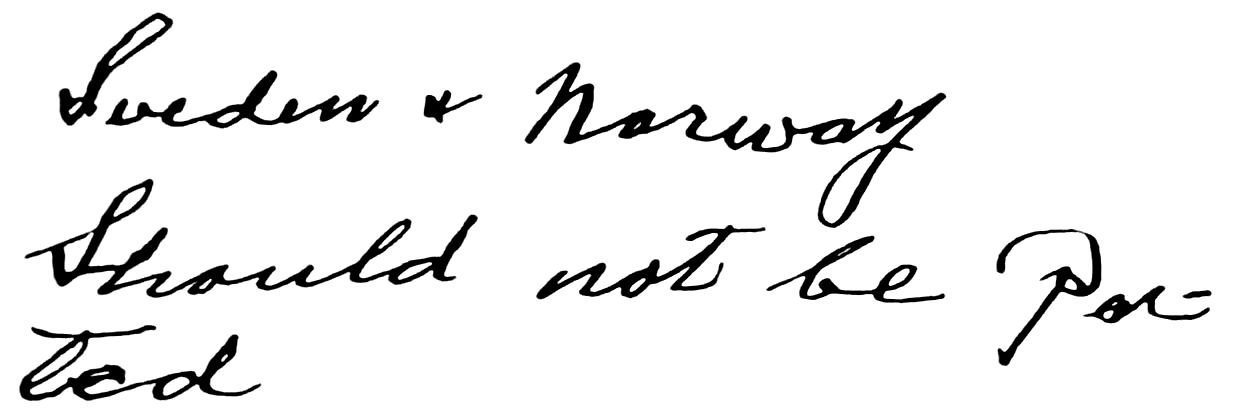 Sweden & Norway
Should not be Par-
ted